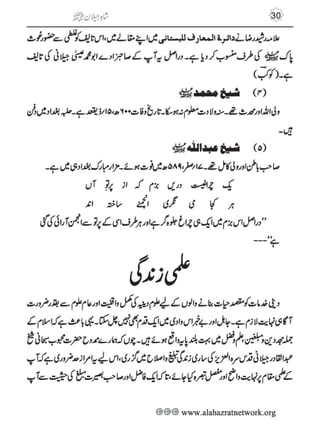 30
شاہ جیلان
علامہ رشید رضا نے دائرۃ المعارف للبستانی میں اپنے مقالے میں، اس تالیف کو غلطی سے حضور غوث
پاک کی طرف منسوب کر دیا ہے۔ دراصل یہ آپ کے صاحبزادے ابو محمد عیسیٰ جیلانی کی تالیف
ہے۔ (کوکب)
(۴) شیخ محمد
ولی اللہ اور محدث تھے۔ سنہ ولادت معلوم نہ ہو سکا۔ تاریخ وفات ۶۰۰ھ، ۱۵ ذیقعد ہے۔ حلبہ بغداد میں دفن
ہیں۔
(۵) شیخ عبداللہ
صاحب باطن اور ولی کامل تھے۔ ۱۷ صفر ۵۸۹ھ میں فوت ہوئے۔ مزار مبارک بغداد ہی میں ہے۔
یک چراغیست دریں بزم کہ از پرتو آں
ہر کجا می نگری انجمنے ساختہ اند
"دراصل اس بزم میں ایک ہی چراغ جلوہ گر ہے اور ہر طرف اسی کے پرتو سے انجمن آرائی کی گئی
ہے"---
علمی زندگی
دینی خدمات کو مقصد حیات بنانے والوں کے لیے علوم دینیہ کی مکمل واقفیت اور عام علوم سے بقدر ضرورت
آگاہی نہایت لازم ہے۔ جاہل اور بے خبر اس وادی میں ایک قدم بھی نہیں چل سکتا۔ یہی باعث ہے کہ اسلام کے
جملہ مجددین و مبلغین، علم و فضل میں بہت بلند پایہ واقع ہوئے ہیں۔ چوں کہ ہمارے ممدوح حضرت محبوب سبحانی شیخ
عبدالقادر جیلانی قدس سرہ العزیز کی ساری زندگی تبلیغ و اصلاح میں گزری، اس لیے یہ امر از حد ضروری ہے کہ آپ
کے علمی مقام پر نہایت واضح اور مفصل تبصرہ کیا جائے، تاکہ ایک فاضل اور صاحب بصیرت مبلغ کی حیثیت سے آپ
www.alahazratnetwork.org